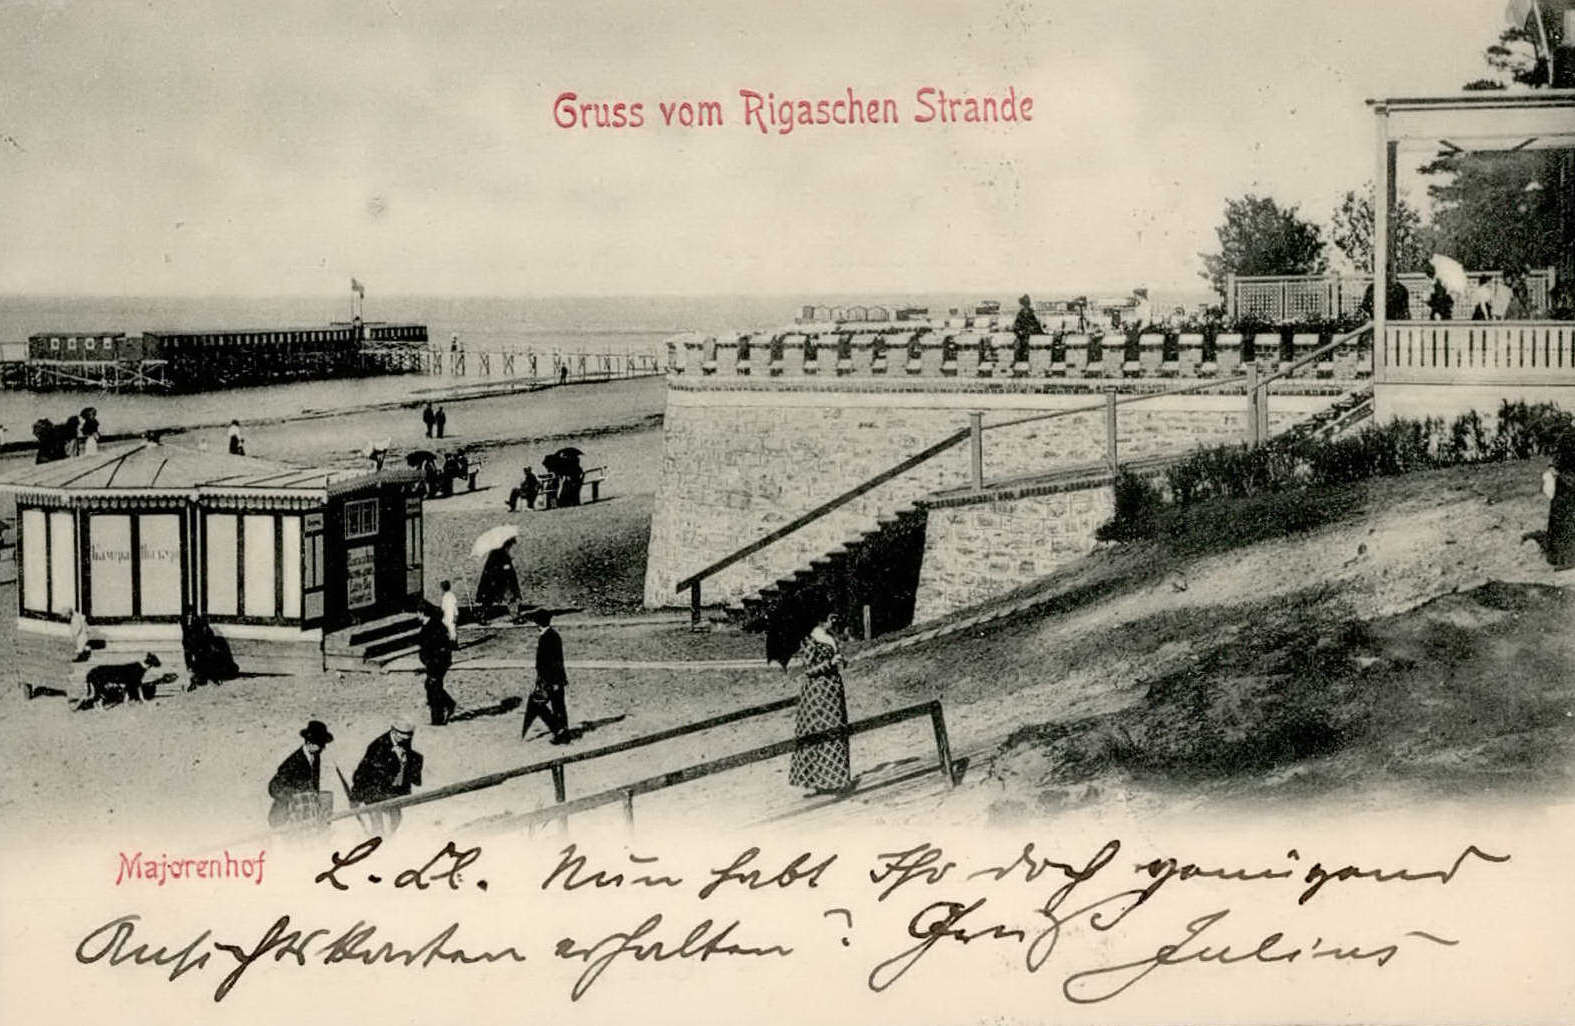 Gruss vom Rigaschen Strande
Majorenhof
L. Ll. Nun habt Ihr doch genügend
Ansichtskarten erhalten? Gruß Julius